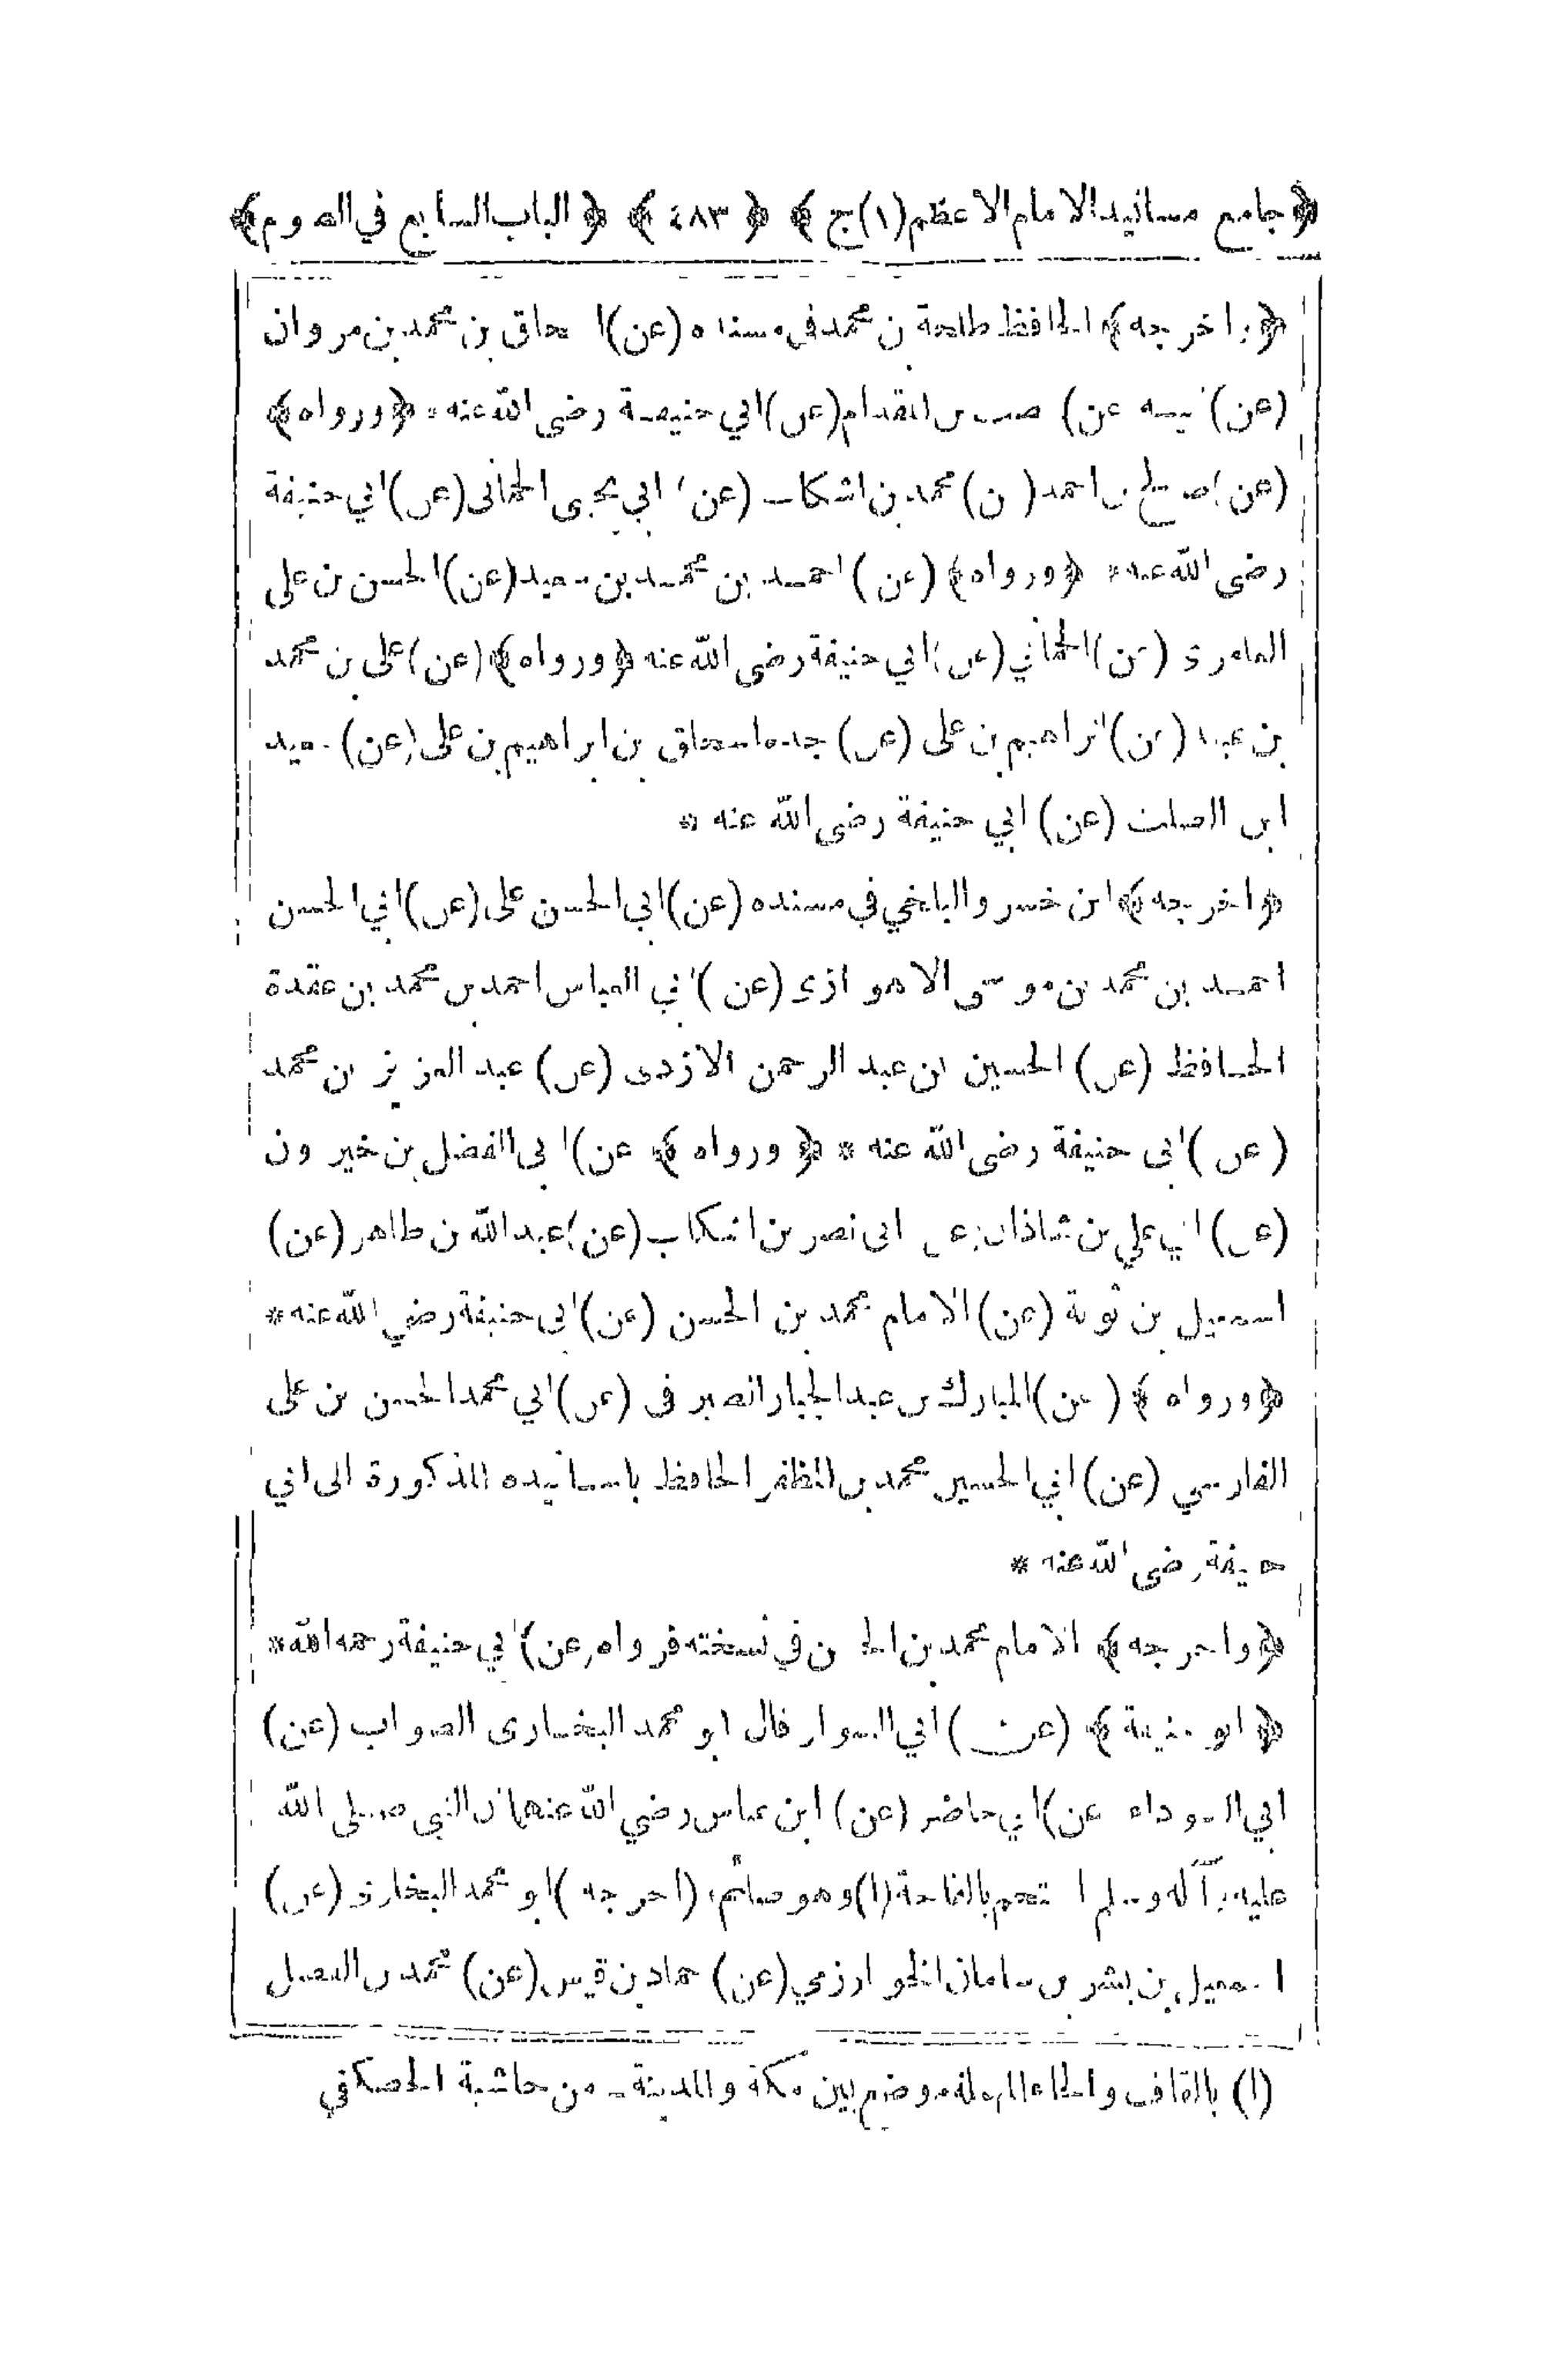 ﴿جامع مسانيد الامام الاعظم (١) ج﴾ ﴿٤٨٣﴾ ﴿الباب السابع في الصوم﴾
﴿واخرجه﴾ الحافظ طلحة بن محمد في مسنده (عن) اسحاق بن محمد بن مروان
(عن) ابيه (عن) المقدام (عن) ابي حنيفة رضى الله عنه * ﴿ورواه﴾
(عن) صالح بن احمد (عن) محمد بن اشكاب (عن) ابي يحيى الحمانى (عن) ابي حنيفة
رضى الله عنه * ﴿ورواه﴾ (عن) احمد بن محمد بن سعيد (عن) الحسن بن على
العامرى (عن) الحماني (عن) ابي حنيفة رضى الله عنه ﴿ورواه﴾ (عن) على بن محمد
بن عبيد (عن) ابراهيم بن على (عن) جده اسحاق بن ابراهيم بن على (عن) سعيد
ابن الصلت (عن) ابي حنيفة رضى الله عنه *
﴿اخرجه﴾ ابن خسرو البلخي في مسنده (عن) ابي الحسن على (عن) ابي الحسن
احمد بن محمد بن موسى الاهوازى (عن) ابي العباس احمد بن محمد بن عقدة
الحافظ (عن) الحسين بن عبد الرحمن الازدى (عن) عبد العزيز بن محمد
(عن) ابى حنيفة رضى الله عنه * ﴿ورواه﴾ (عن) ابى الفضل بن خيرون
(عن) ابي علي بن شاذان (عن) ابى نصر بن اشكاب (عن) عبد الله بن طاهر (عن)
اسمعيل بن توبة (عن) الامام محمد بن الحسن (عن) ابى حنيفة رضي الله عنه *
﴿ورواه﴾ (عن) المبارك بن عبد الجبار الصيرفى (عن) ابي محمد الحسن بن على
الفارسي (عن) ابي الحسين محمد بن المظفر الحافظ باسانيده المذكورة الى ابي
حنيفة رضى الله عنه *
﴿واخرجه﴾ الامام محمد بن الحسن في نسخته فرواه (عن) ابي حنيفة رحمه الله *
﴿ابو حنيفة﴾ (عن) ابي السوار قال ابو محمد البخارى الصواب (عن)
ابي السوداء (عن) ابي حاضر (عن) ابن عباس رضي الله عنهما ان النبي صلى الله
عليه وآله وسلم احتجم بالقاحة (١) وهو صائم * (اخرجه) ابو محمد البخارى (عن)
اسمعيل بن بشر بن سامان الخوارزمي (عن) حماد بن قيس (عن) محمد بن الفضل
(١) بالقاف والحاء المهملة موضع بين مكة والمدينة ـ من حاشية الحصكفي